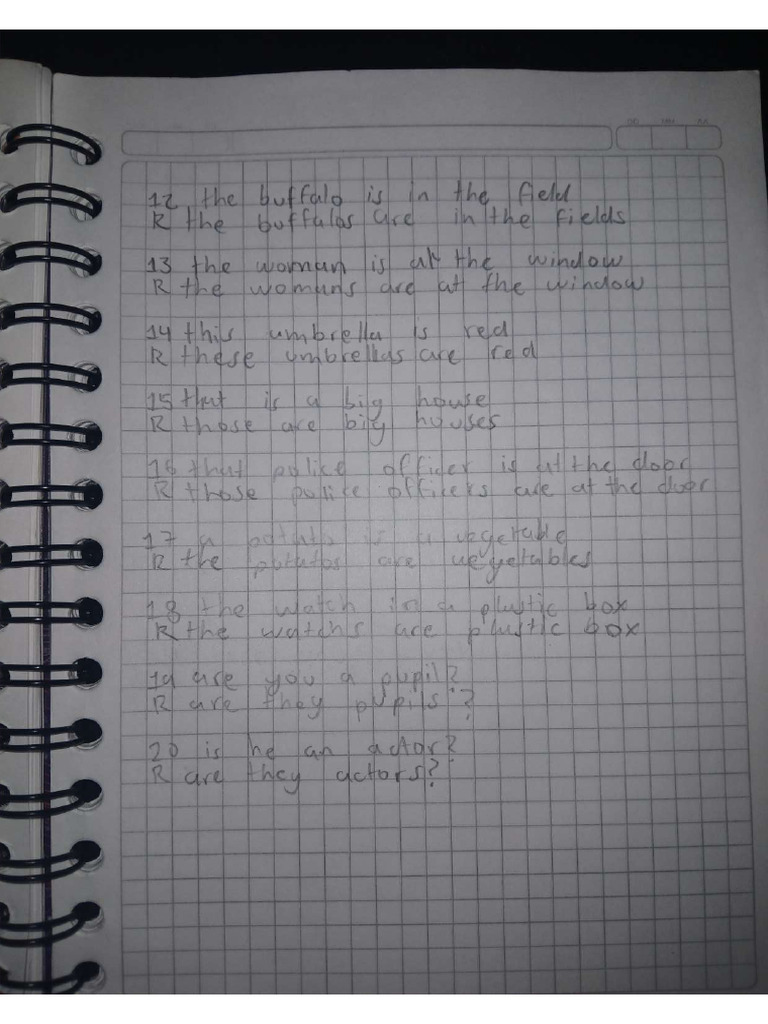 12 the buffalo is in the field
R the buffalos are in the fields
13 the woman is at the window
R the womans are at the window
14 this umbrella is red
R these umbrellas are red
15 that is a big house
R those are big houses
16 that police officer is at the door
R those police officers are at the door
17 a potato is a vegetable
R the potatos are vegetables
18 the watch in a plastic box
R the watchs are plastic box
19 are you a pupil?
R are they pupils?
20 is he an actor?
R are they actors?